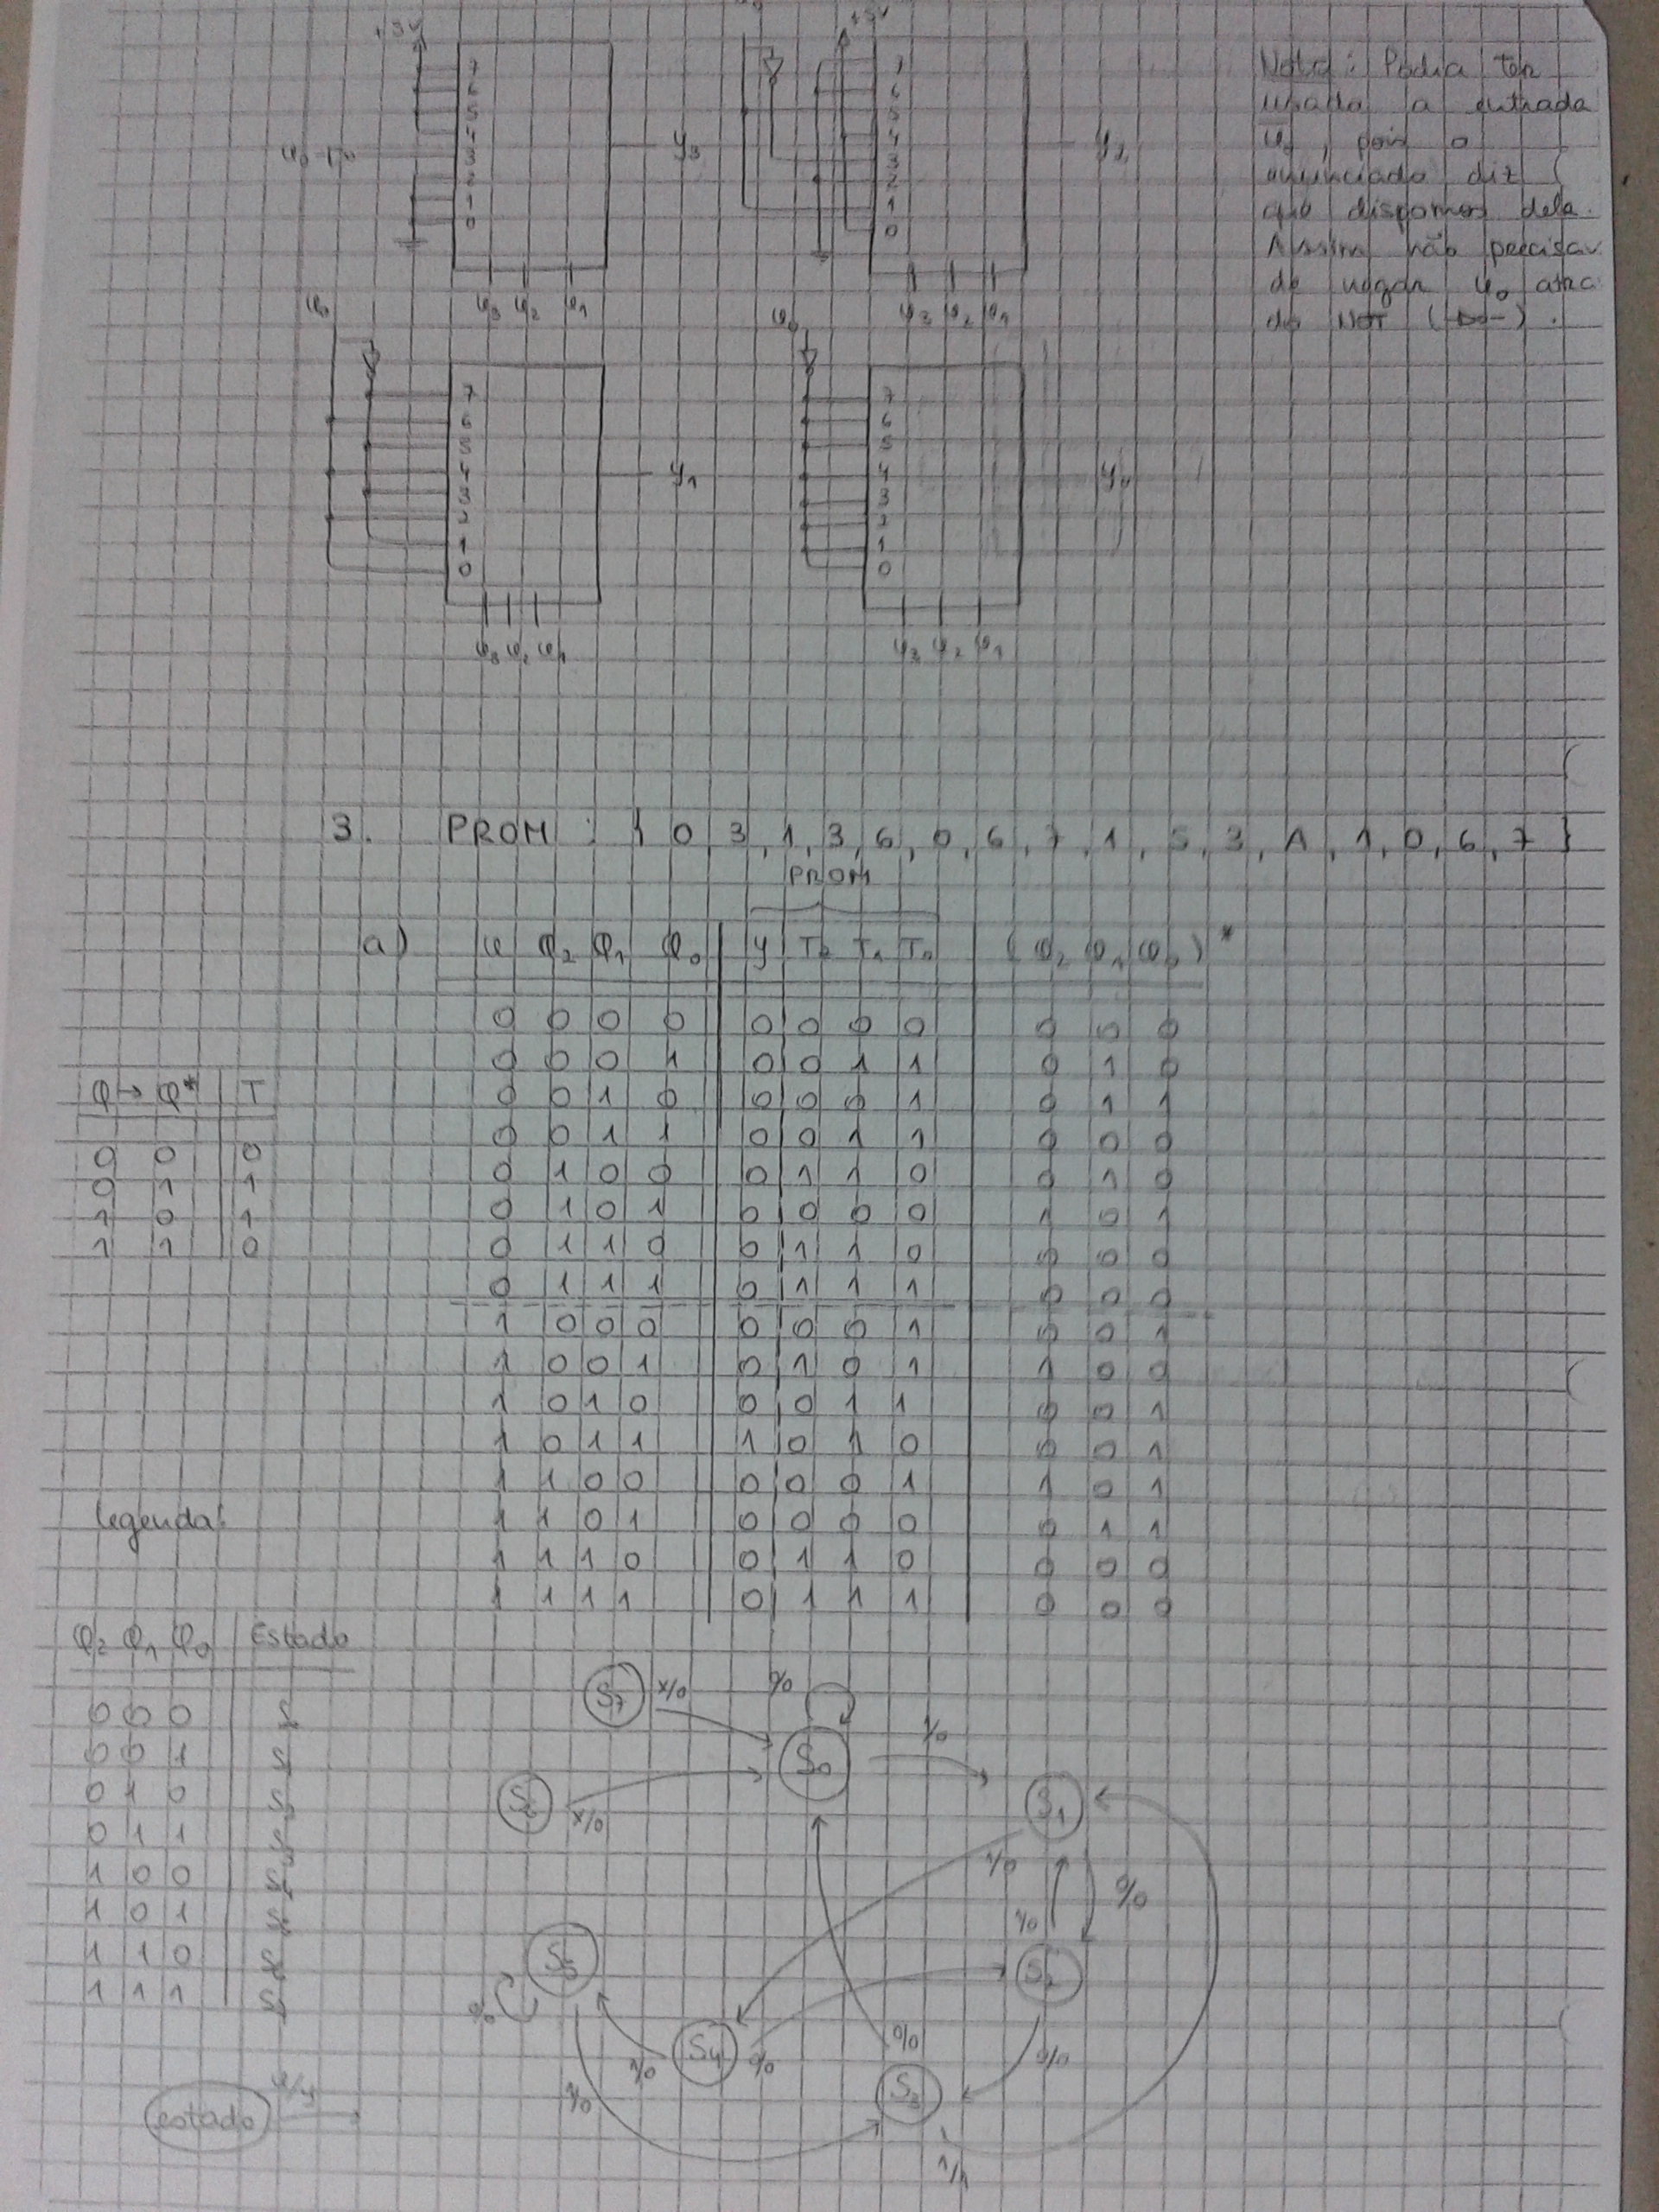 +5V
7
6
5
4
3
2
1
0
y₃
φ₃ φ₂ φ₁
+5V
7
6
5
4
3
2
1
0
y₂
φ₃ φ₂ φ₁
Nota: Podia ter
usado a entrada
φ̄₀, pois o
enunciado diz
que dispomos dela.
Assim não precisav
de negar φ₀ atra
do NOT
φ₀
7
6
5
4
3
2
1
0
y₁
φ₃ φ₂ φ₁
φ₀
7
6
5
4
3
2
1
0
y₀
φ₃ φ₂ φ₁
3. PROM : { 0,3,1,3,6,0,6,7,1,5,3,A,1,0,6,7 }
PROM
a) φ Q₂ Q₁ Q₀ y T₂ T₁ T₀ (Q₂ Q₁ Q₀)*
0 0 0 0 0 0 0 0 0 0 0
0 0 0 1 0 0 1 1 0 1 0
0 0 1 0 0 0 0 1 0 1 1
0 0 1 1 0 0 1 1 0 0 0
0 1 0 0 0 1 1 0 0 1 0
0 1 0 1 0 0 0 0 1 0 1
0 1 1 0 0 1 1 0 0 0 0
0 1 1 1 0 1 1 1 0 0 0
1 0 0 0 0 0 0 1 0 0 1
1 0 0 1 0 1 0 1 1 0 0
1 0 1 0 0 0 1 1 0 0 1
1 0 1 1 1 0 1 0 0 0 1
1 1 0 0 0 0 0 1 1 0 1
1 1 0 1 0 0 0 0 0 1 1
1 1 1 0 0 1 1 0 0 0 0
1 1 1 1 0 1 1 1 0 0 0
Q → Q* T
0 0 0
0 1 1
1 0 1
1 1 0
legenda:
Q₂ Q₁ Q₀ Estado
0 0 0
0 0 1
0 1 0
0 1 1
1 0 0
1 0 1
1 1 0
1 1 1
S₇ x/0 0/0
S₀ 1/0
S₆ x/0
S₁
1/0 0/0
1/0
S₅ S₂
0/0
S₄ 0/0 0/0 0/0
1/0
S₃
1/0
estado φ/y
1/1